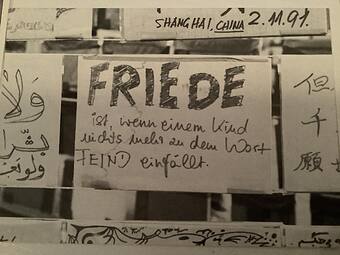 SHANGHAI, CHINA 2.11.91.
FRIEDE
ist, wenn einem Kind
nichts mehr zu dem Wort
FEIND einfällt.
ولا
بشرا
ولو
但
千
願